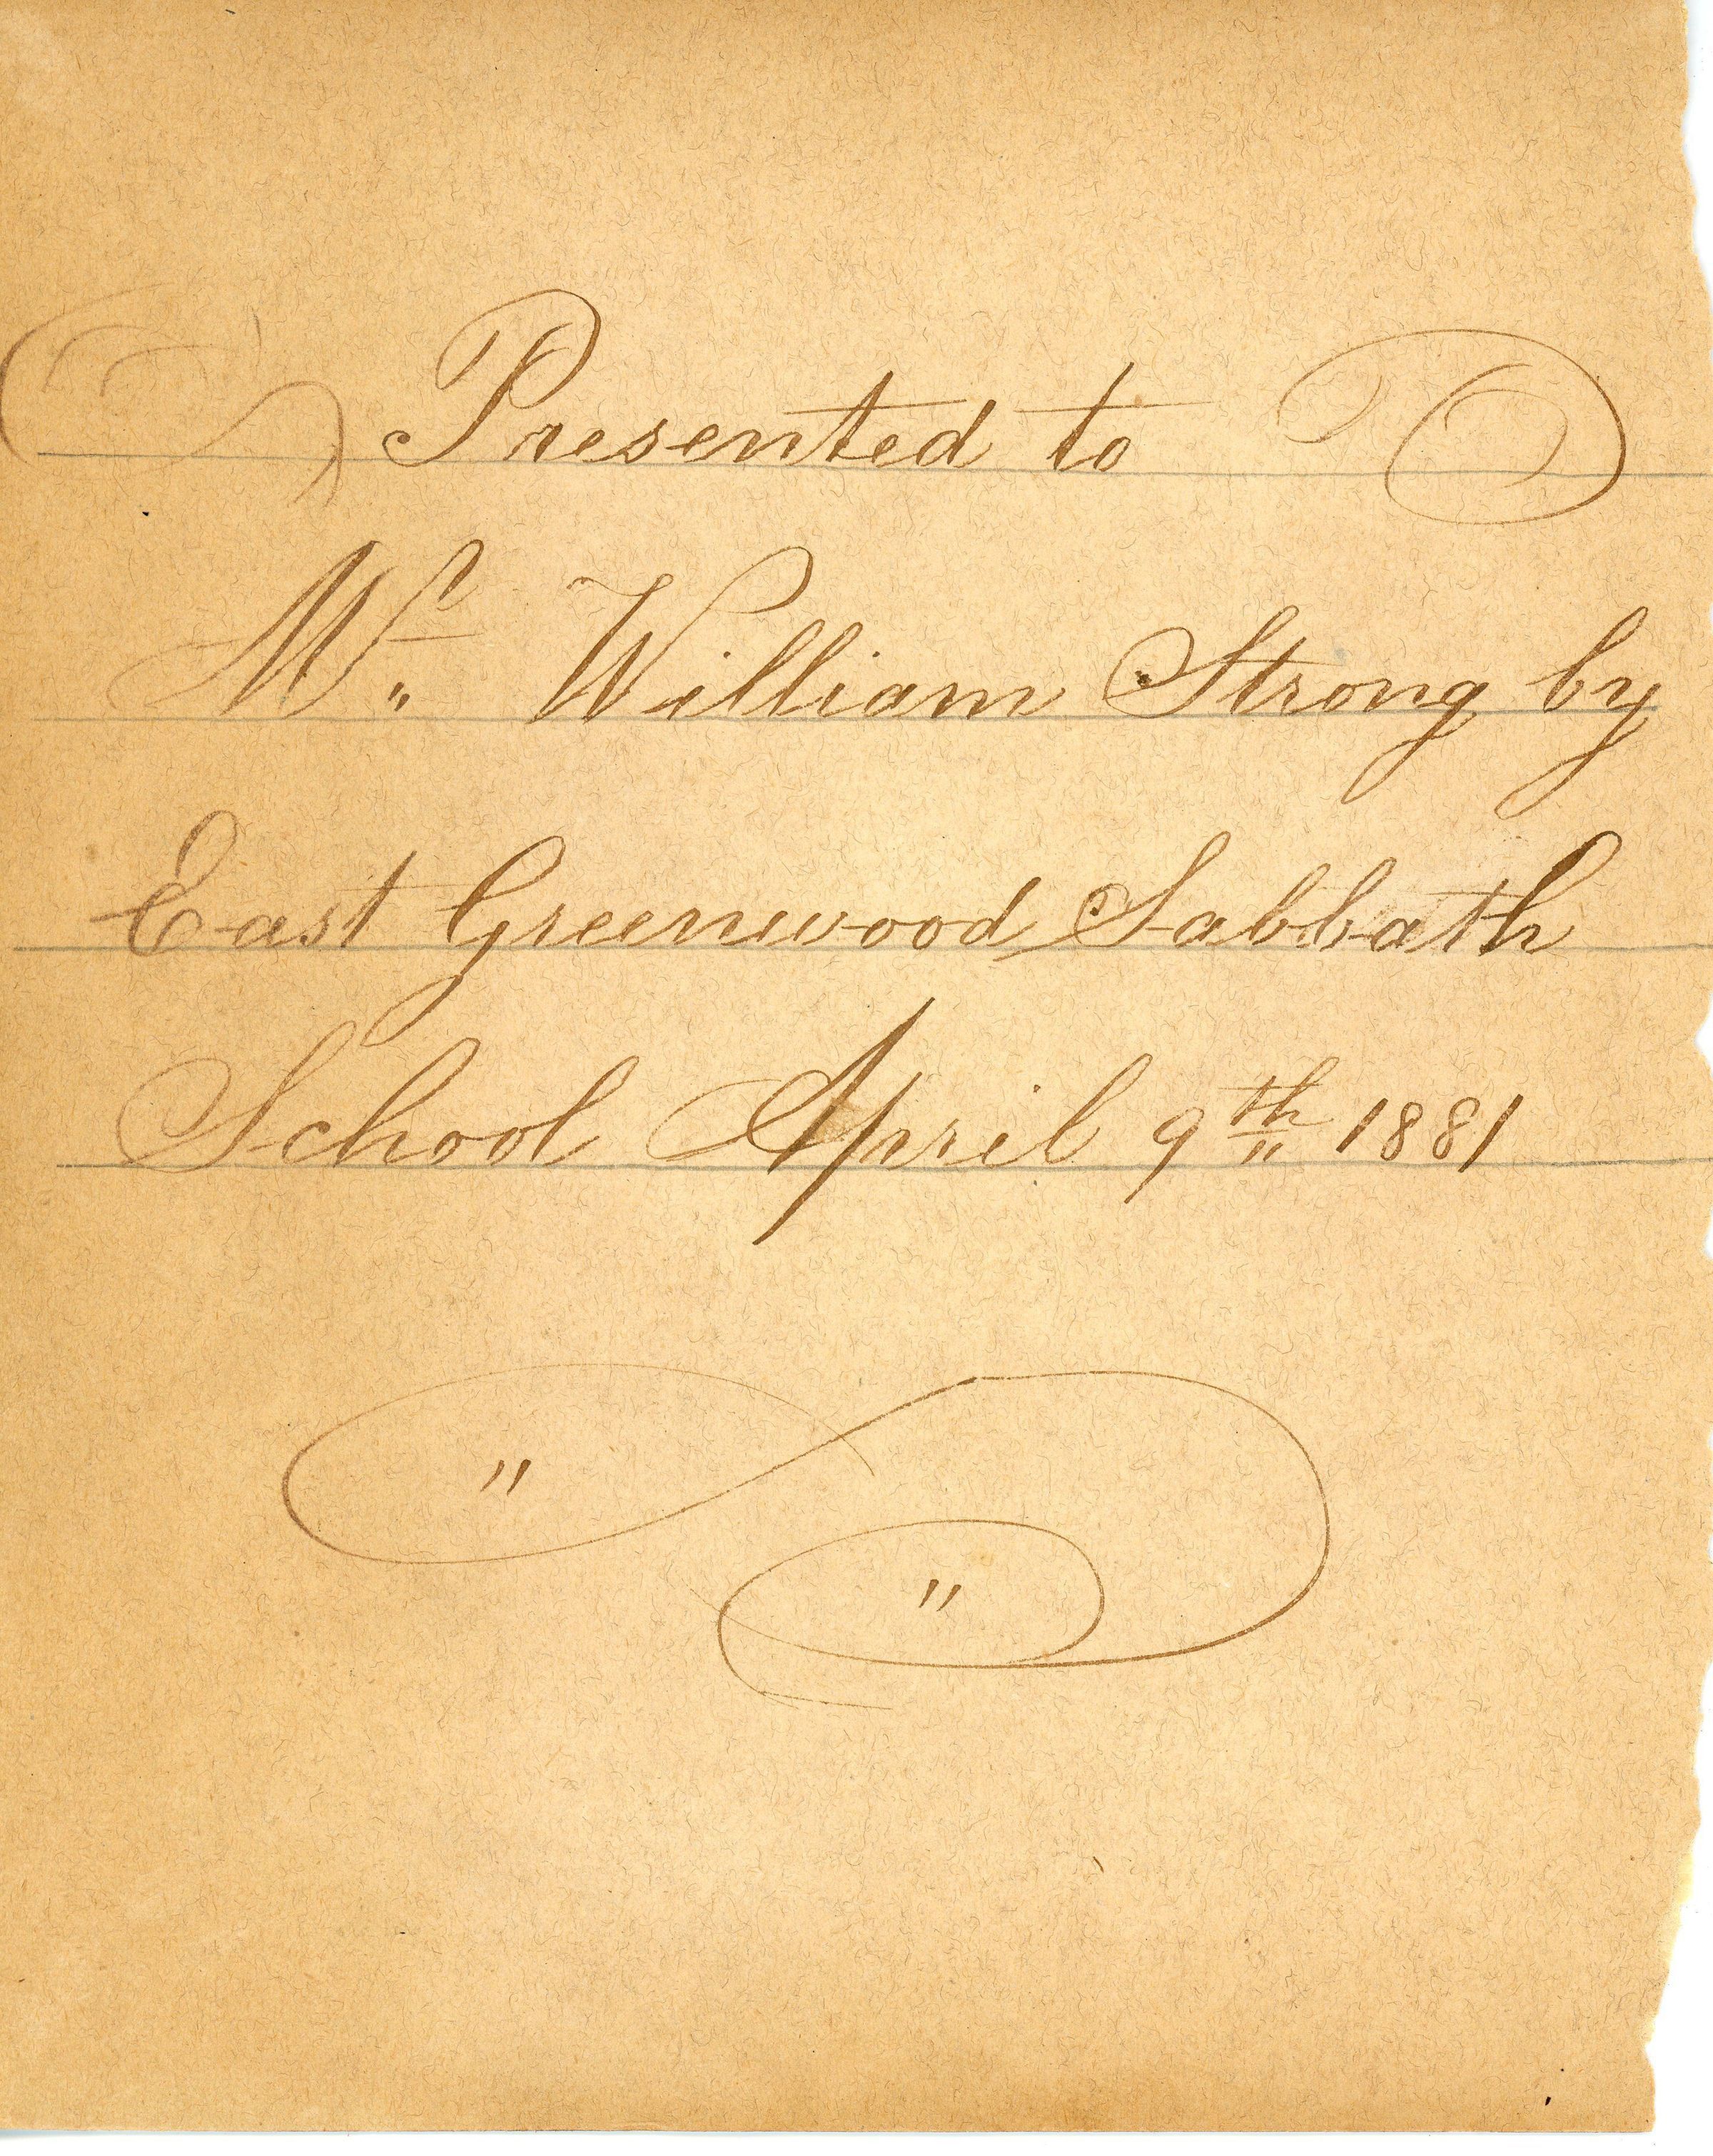 Presented to
Mr. William Strong by
East Greenwood Sabbath
School April 9th 1881
" 
"